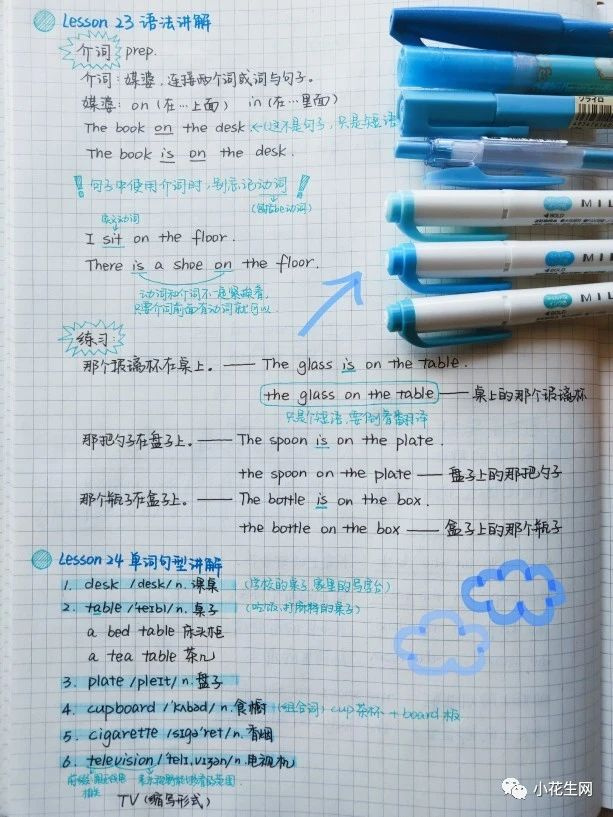 Lesson 23 语法讲解
介词 prep.
介词：媒婆，连接两个词或词与句子。
媒婆：on (在…上面) in (在…里面)
The book on the desk ←(这不是句子，只是短语
The book is on the desk.
! 句子中使用介词时，别忘记动词 !
(包括be动词)
实义动词
I sit on the floor.
There is a shoe on the floor.
动词和介词不一定紧挨着，
只要介词前面有动词就可以
练习：
那个玻璃杯在桌上。—— The glass is on the table.
the glass on the table —— 桌上的那个玻璃杯
只是个短语，要倒着翻译
那把勺子在盘子上。—— The spoon is on the plate.
the spoon on the plate —— 盘子上的那把勺子
那个瓶子在盒子上。—— The bottle is on the box.
the bottle on the box —— 盒子上的那个瓶子
Lesson 24 单词句型讲解
1. desk /desk/ n. 课桌 (学校的桌子、家里的写字台)
2. table /'teɪbl/ n. 桌子 (吃饭、打麻将的桌子)
a bed table 床头柜
a tea table 茶几
3. plate /pleɪt/ n. 盘子
4. cupboard /'kʌbəd/ n. 食橱 (组合词) cup 茶杯 + board 板
5. cigarette /sɪgə'ret/ n. 香烟
6. television /'telɪ,vɪʒən/ n. 电视机
TV (缩写形式)
MIL
MIL
MIL
小花生网